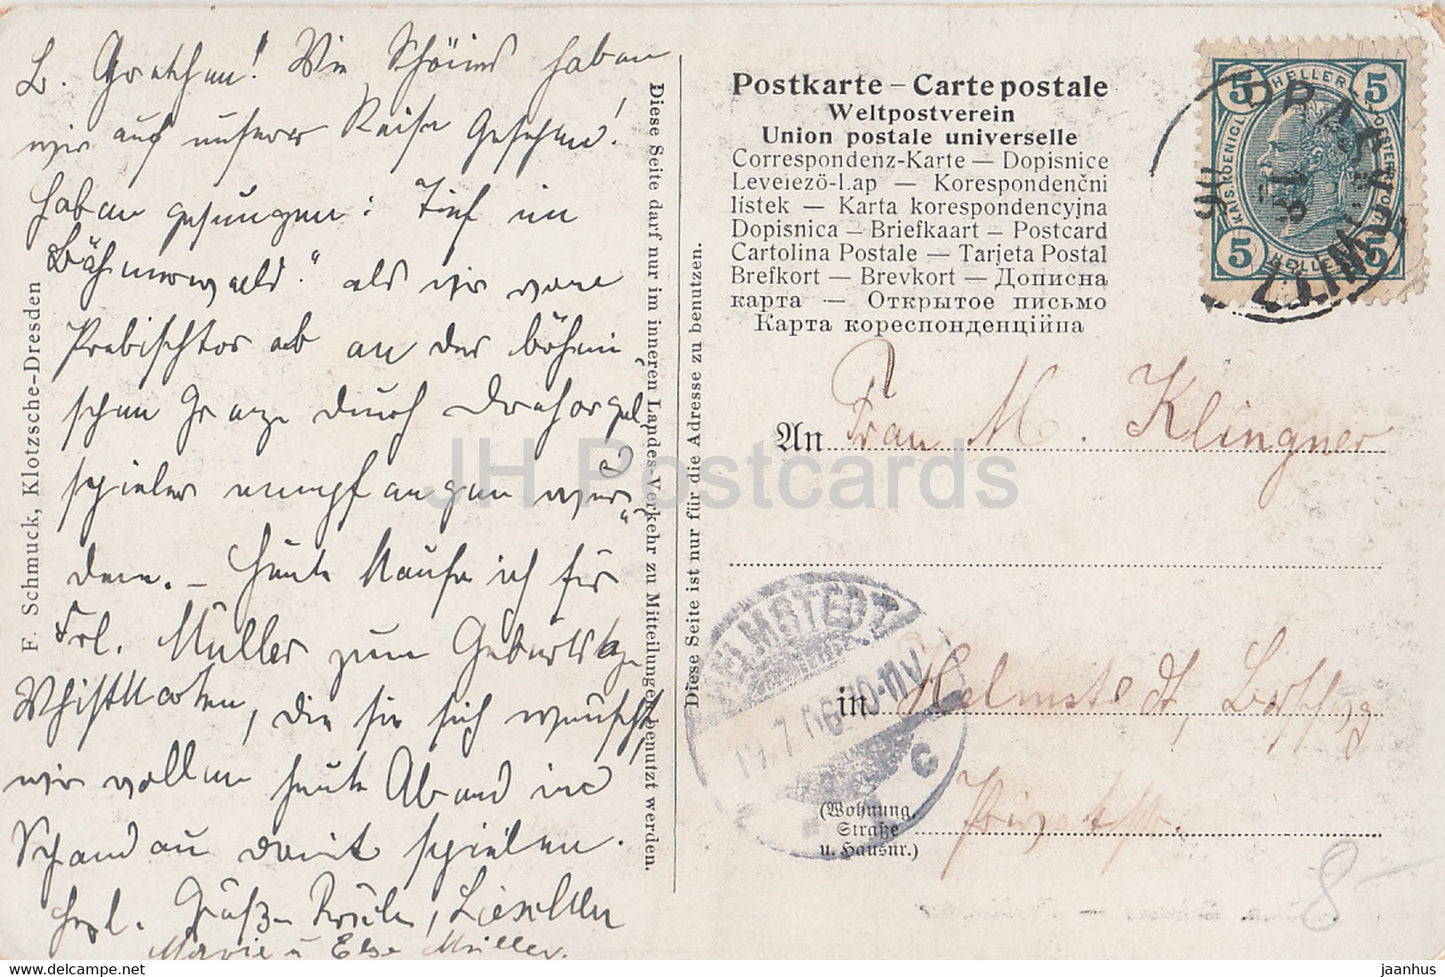 L. Gretchen! Wie Schönes haben
wir auf unserer Reise gesehen!
haben gesungen: Tief im
Böhmerwald" als wir vom
Prebischtor ab an der böhmi-
schen Grenze durch Drehorgel
spieler empfangen wur-
den. – Heute kaufe ich für
Frl. Müller zum Geburtstg.
Whistkarten, die sie sich wünscht,
wir wollen heute Abend in
Schandau damit spielen.
Herzl. Grüße, Lieschen
Marie u Else Müller.
F. Schmuck, Klotzsche-Dresden
Diese Seite darf nur im inneren Landes-Verkehr zu Mitteilungen benutzt werden.
Diese Seite ist nur für die Adresse zu benutzen.
Postkarte – Carte postale
Weltpostverein
Union postale universelle
Correspondenz-Karte — Dopisnice
Levelező-Lap — Korespondenční
lístek — Karta korespondencyjna
Dopisnica — Briefkaart — Postcard
Cartolina Postale — Tarjeta Postal
Brefkort — Brevkort — Дописна
карта — Открытое письмо
Карта кореспонденційна
5 HELLER 5
KAIS. KOENIGL. OESTERR. POST
5 HELLER 5
06
An Frau M. Klingner
in Helmstedt,
(Wohnung,
Straße
u. Hausnr.)
HELMSTEDT
7.06 10-11V
c
8-
JH Postcards
jaanhus @ delcampe.net